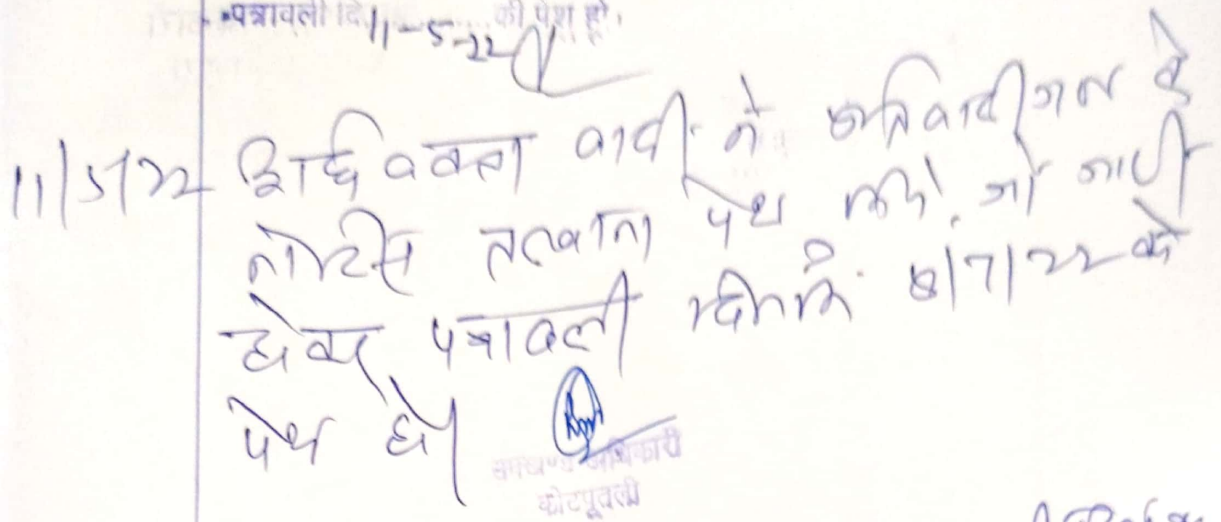 पत्रावली दि. 11-5-22 को पेश हो।
11/5/22 अधिवक्ता वादी ने प्रतिवादीगण के
नोटिस तलवाना पेश किये, जो जारी
होकर पत्रावली दिनांक 8/7/22 को
पेश हो।
उपखण्ड अधिकारी
कोटपूतली